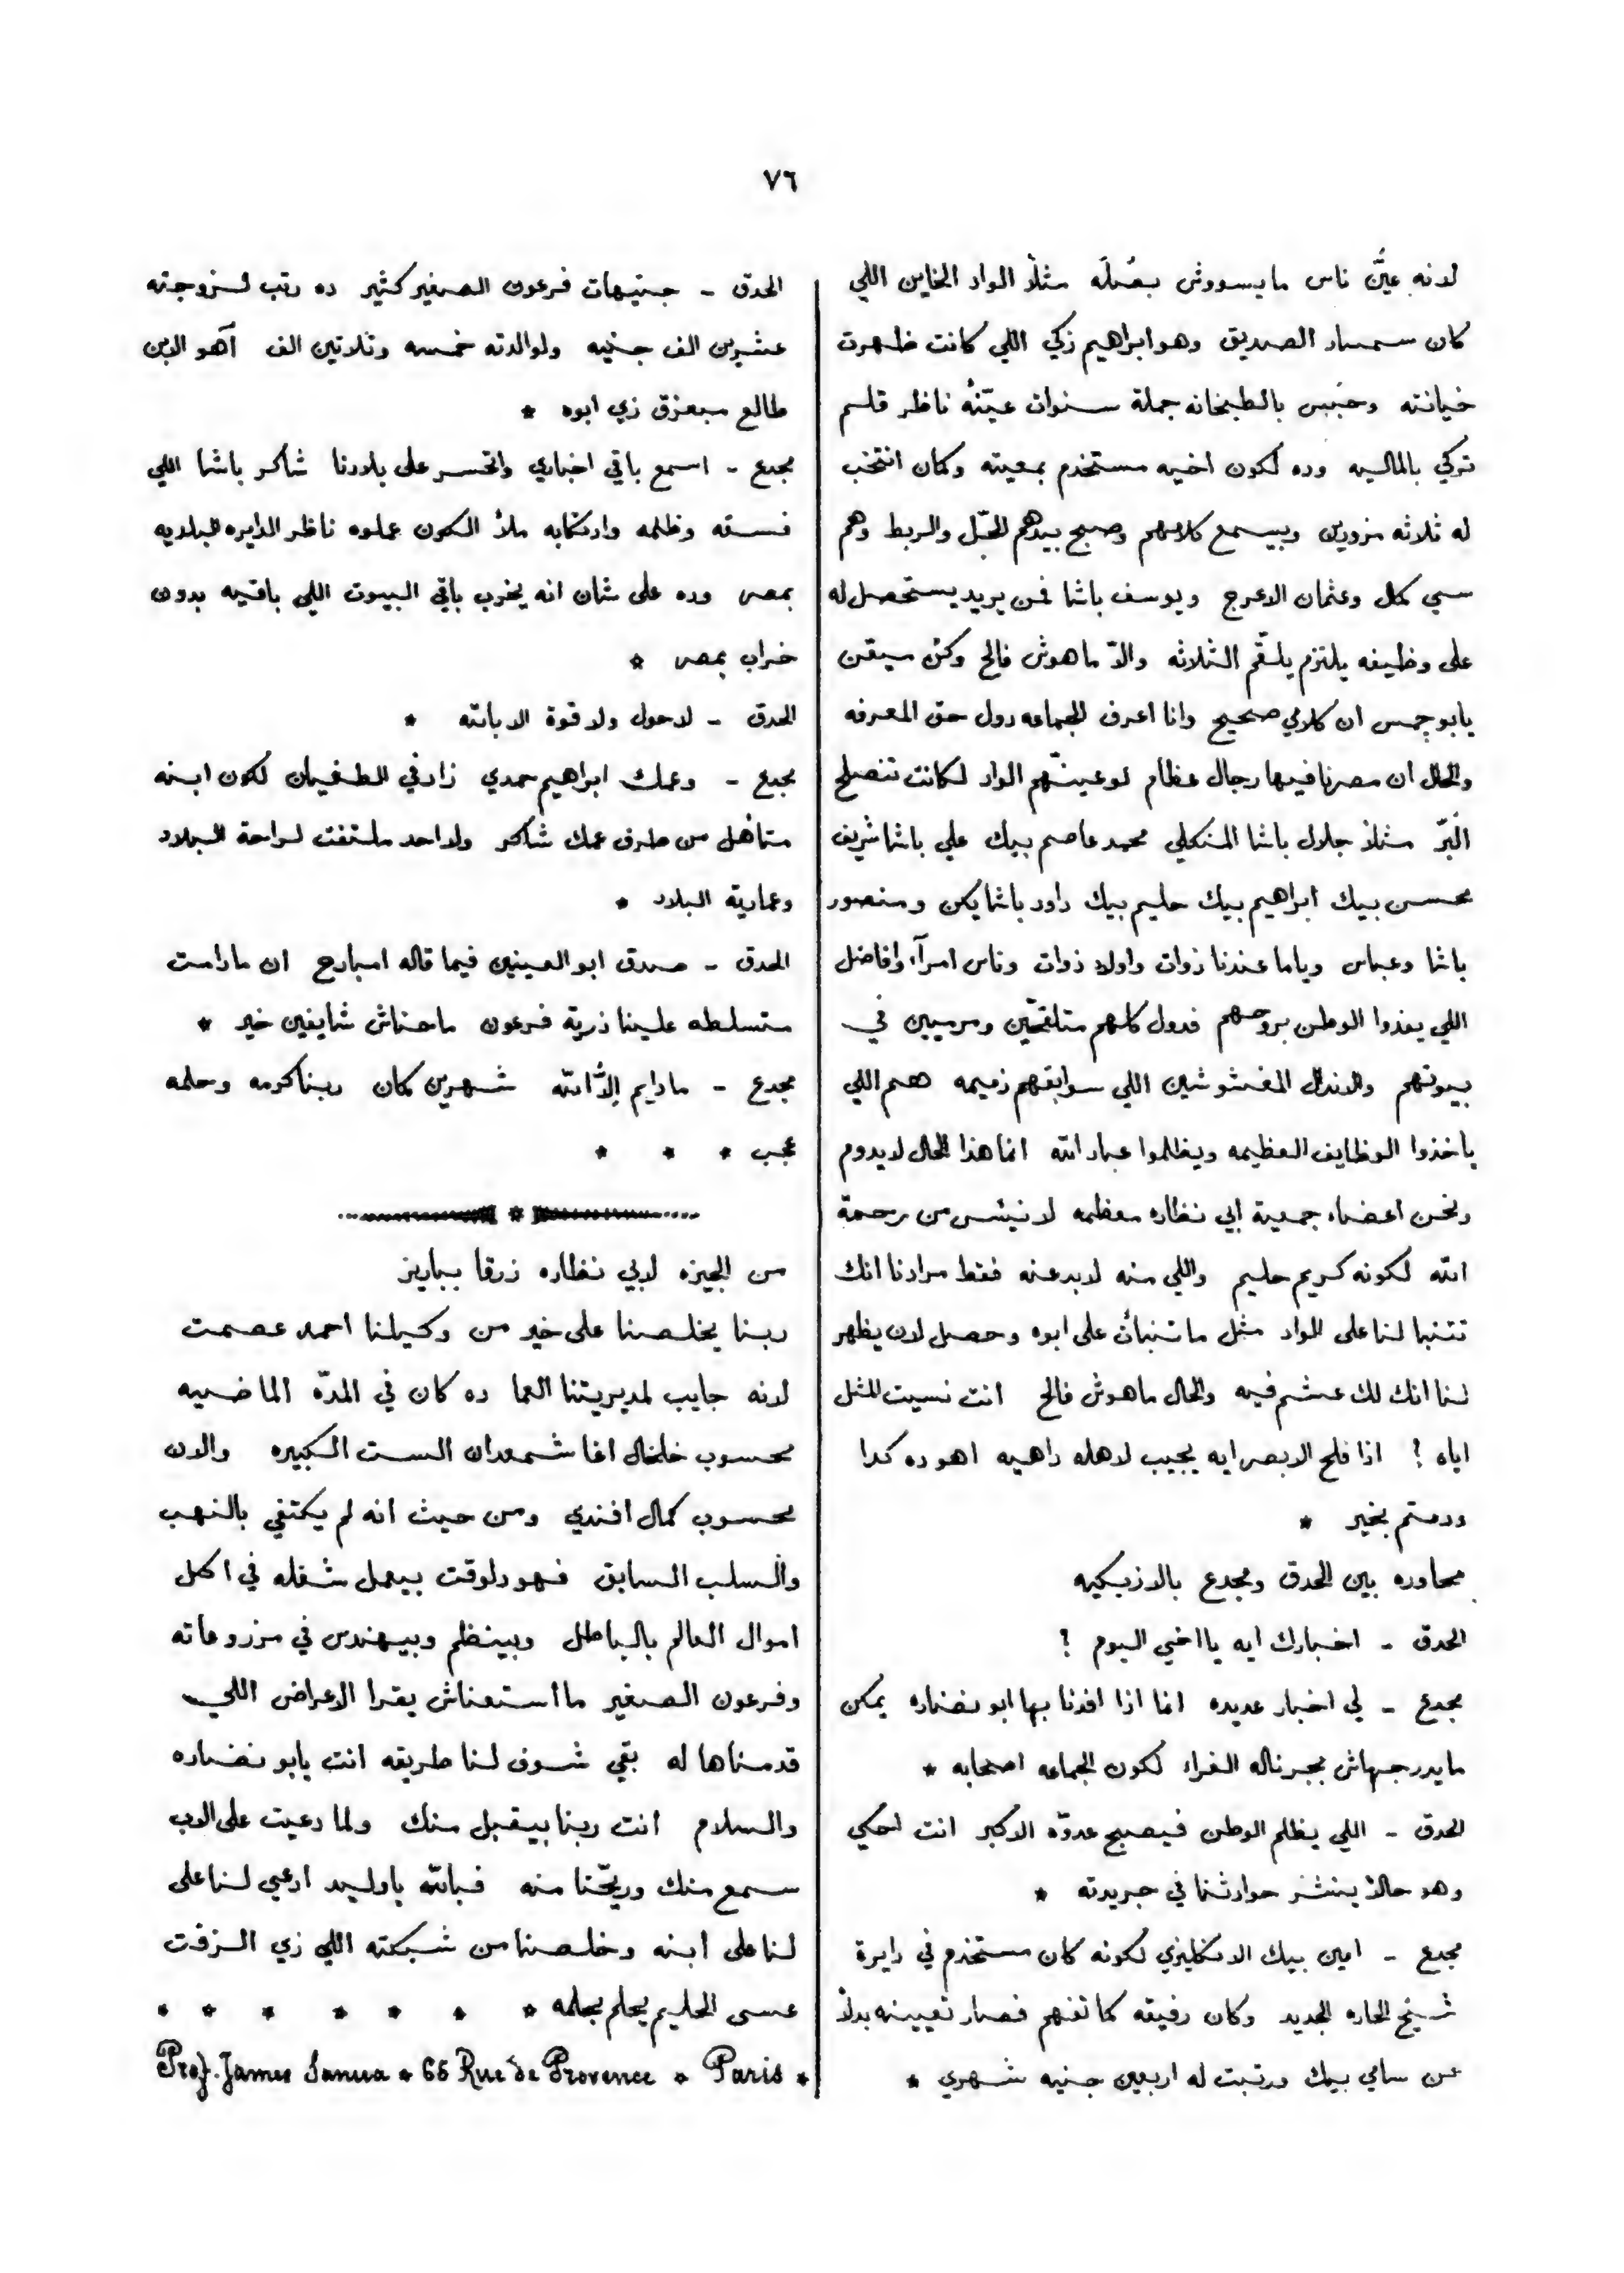 ٧٦
لانه عيَّن ناس ما يسووش بصُلَه مثلاً الواد الخاين اللي
كان سمسار الصديق وهو ابراهيم زكي اللي كانت ظهرت
خيانته وحبُس بالطبخانه جملة سنوات عيّنهُ ناظر قلم
تركي بالماليه وده لكون اخيه مستخدم بمعيته وكمان انتخب
له ثلاثه مزورين وبيسمع كلامهم وصبح بيدهم الحَلّ والربط وهم
سي كمال وعثمان الاعرج ويوسف باشا فمن يريد يستحصل له
على وظيفه يلتزم يلقّم الثلاثه والاّ ماهوش فالح وكُن ميقن
يابو جمس ان كلامي صحيح وانا اعرف الجماعه دول حق المعرفه
والحال ان مصرنا فيها رجال عظام لو عينّهم الواد لكانت تنصلح
البَرّ مثلاً جلال باشا المنكلي محمد عاصم بيك علي باشا شريف
محسن بيك ابراهيم بيك حليم بيك داود باشا يكن ومنصور
باشا وعباس وياما عندنا ذوات واولاد ذوات وناس امرآء وافاضل
اللي يفدوا الوطن بروحهم فدول كلهم متلقّحين ومرميين في
بيوتهم والاندال المغشوشين اللي سوابقهم ذميمه هم اللي
ياخذوا الوظايف العظيمه ويظلموا عباد الله انما هذا الحال لا يدوم
ونحن اعضاء جمعية ابي نظاره معظمه لا نيئس من رحمة
الله لكونه كريم حليم واللي منه لابد عنه فقط مرادنا انك
تتنبا لنا على الواد مثل ما تنبأت على ابوه وحصل لان يظهر
لنا انك لك عشم فيه والحال ماهوش فالح انت نسيت المثل
اياه ؟ اذا فلح الابصر ايه يجيب لاهله داهيه اهو ده كدا
ودمتم بخير *
محاوره بين الحدق ومجدع بالازبكيه
الحدق - اخبارك ايه يا اخي اليوم ؟
مجدع - لي اخبار عديده انما اذا افدنا بها ابو نضاره يمكن
مايدرجهاش بجرناله الغراء لكون الجماعه اصحابه *
الحدق - اللي يظلم الوطن فيصبح عدوّه الاكبر انت احكي
وهو حالاً ينشر حوادثنا في جريدته *
مجدع - امين بيك الانكليزي لكونه كان مستخدم في دايرة
شيخ الحاره الجديد وكان رفيقه كما تفهم فصار تعيينه بدلاً
عن سامي بيك ورتبت له اربعين جنيه شهري *
الحدق - جنيهات فرعون الصغير كثير ده رتب لزوجته
عشرين الف جنيه ولوالدته خمسه وثلاتين الف آهو الابن
طالع مبعزق زي ابوه *
مجدع - اسمع باقي اخباري واتحسر على بلادنا شاكر باشا اللي
فسقه وظلمه وارتكابه ملأ الكون عملوه ناظر الدايره البلديه
بمصر وده على شان انه يخرب باقي البيوت اللي باقيه بدون
خراب بمصر *
الحدق - لا حول ولا قوة الا بالله *
مجدع - وعمك ابراهيم حمدي زاد في الطغيان لكون ابنه
متأهل من طرف عمك شاكر ولا احد ملتفت لراحة البلاد
وعمارية البلاد *
الحدق - صدق ابو العينين فيما قاله امبارح ان مادامت
متسلطه علينا ذرية فرعون ماحناش شايفين خير *
مجدع - مادايم إلاَّ الله شهرين كمان ربنا كرمه وحلمه
عجب * * *
*
من الجيزه لابي نظاره زرقا بباريز
ربنا يخلصنا على خير من وكيلنا احمد عصمت
لانه جايب لمديريتنا العما ده كان في المدّه الماضيه
محسوب خلخال اغا شمعدان الست الكبيره والان
محسوب كمال افندي ومن حيث انه لم يكتفي بالنهب
والسلب السابق فهو دلوقت بيعمل شغله في اكل
اموال العالم بالباطل وبينظم وبيهندس في مزروعاته
وفرعون الصغير ما استعناش يقرا الاعراض اللي
قدمناها له بقي شوف لنا طريقه انت يابو نضاره
والسلام انت ربنا بيقبل منك ولما دعيت على الاب
سمع منك وريّحنا منه فبالله ياوليد ادعي لنا على
لنا على ابنه وخلصنا من شبكته اللي زي الزفت
عسى الحليم يحلم بحلمه * * * * * * *
Prof. James Sanua * 65 Rue de Provence * Paris *